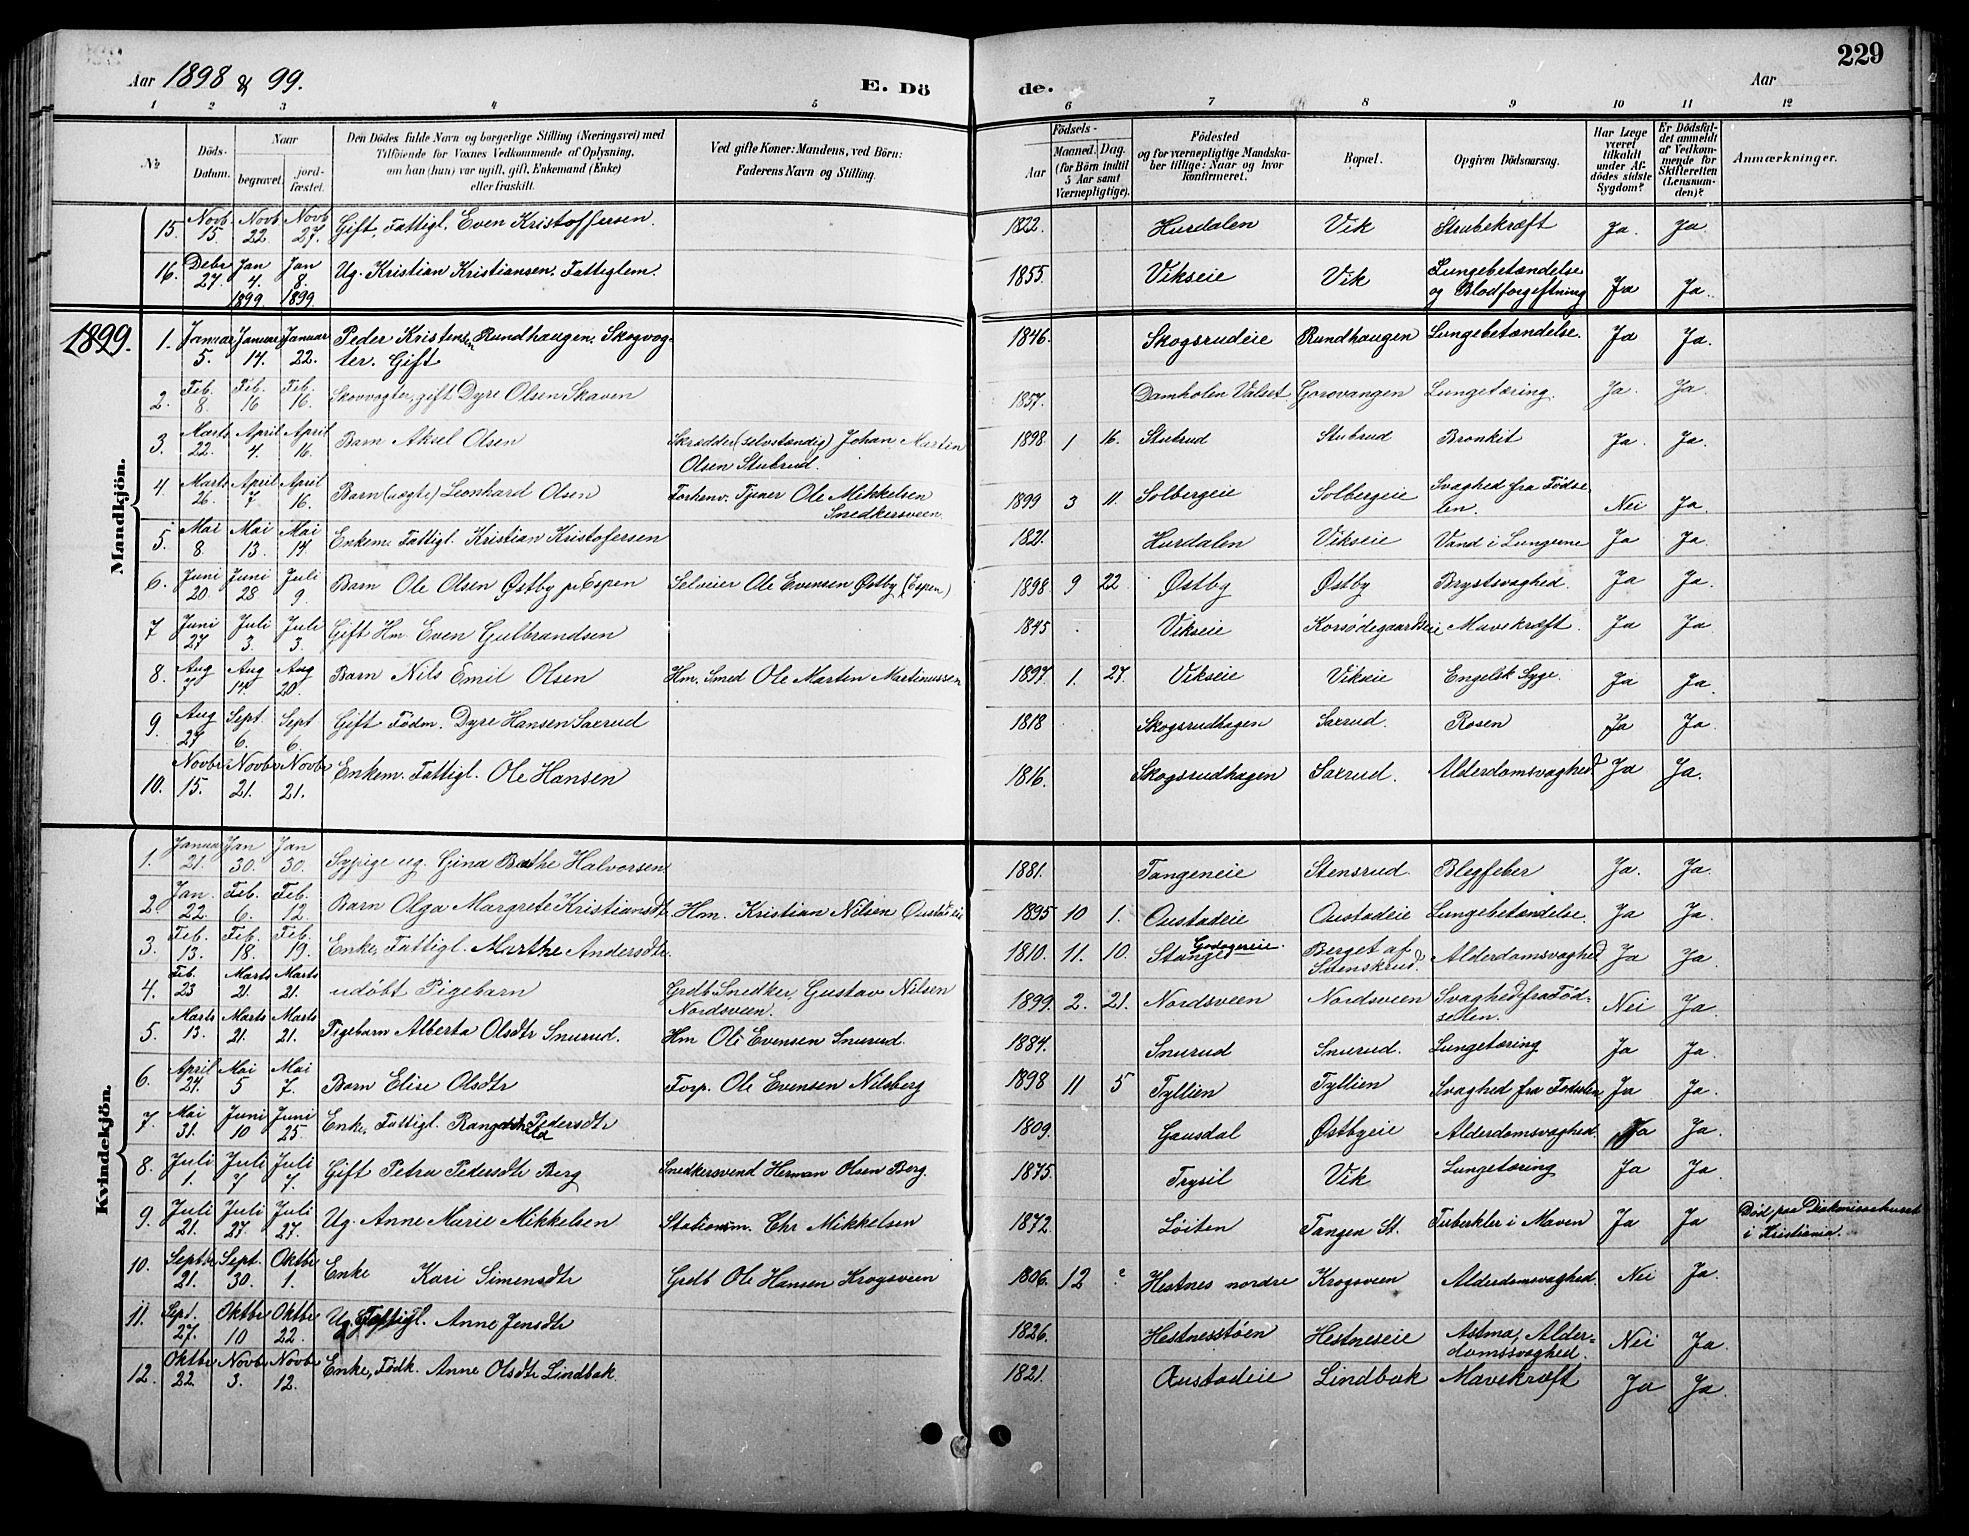 Aar 1898 & 99.
E. Dö
de.
Aar
229
1 2 3 4 5 6 7 8 9 10 11 12
No
Döds-Datum.
Naar
begravet.
jordfæstet.
Den Dödes fulde Navn og borgerlige Stilling (Næringsvei) med
Tilföiende for Voxnes Vedkommende af Oplysning,
om han (hun) var ugift, gift, Enkemand (Enke)
eller fraskilt.
Ved gifte Koner: Mandens, ved Börn:
Faderens Navn og Stilling.
Födsels-
Aar
Maaned. Dag.
(for Börn indtil
5 Aar samt
Værnepligtige).
Födested
og for værnepligtige Mandskaber
tillige: Naar og hvor
konfirmeret.
Bopæl.
Opgiven Dödsaarsag.
Har Læge
været
tilkaldt
under Afdödes
sidste
Sygdom?
Er Dödsfaldet
anmeldt
af Vedkommende
for
Skifteretten
(Lensmanden)?
Anmærkninger.
Mandkjön.
15. Novb 15. Novb 22 Novb 27. Gift, Fattigl. Even Kristoffersen. 1822. Hurdalen Vik Strubekræft Ja. Ja
16. Debr 27. Jan 4. 1899 Jan 8. 1899 Ug. Kristian Kristiansen. Fattiglem. 1855. Vikseie Vik Lungebetændelse og Blodforgiftning Ja Ja.
1899.
1. Januar 5. Januar 14. Januar 22. Peder Kristensen Rundhaugen, Skogvogter. Gift 1846. Skogsrudeie Rundhaugen Lungebetændelse. Ja Ja.
2. Feb. 8. Feb. 16 Feb. 16. Skovvogter, gift Dyre Olsen Skaven 1857. Damholen Valset Gorovangen Lungetæring. Ja. Ja.
3. Marts 22. April 4. April 16. Barn Aksel Olsen Skrædder (selvstændig) Johan Martin Olsen Stubrud. 1898 1 16. Stubrud Stubrud Bronkit Ja. Ja.
4. Marts 26. April 7 April 16. Barn (uægte) Leonhard Olsen Forhenv. Tjener Ole Mikkelsen Snedkersveen. 1899 3 11. Solbergeie Solbergeie Svaghed fra Fødselen. Nei Ja.
5. Mai 8. Mai 13. Mai 14 Enkem. Fattigl. Kristian Kristofersen 1821. Hurdalen Vikseie Vand i Lungerne Ja Ja.
6. Juni 20. Juni 28 Juli 9. Barn Ole Olsen Østby p. Espen Selveier Ole Evensen Østby (Espen) 1898 9 22 Østby Østby Brystsvaghed. Ja Ja.
7 Juni 27 Juli 3. Juli 3. Gift Hm Even Gulbrandsen 1845 Vikseie Korsødegaardseie Mavekræft. Ja Ja
8. Aug 7 Aug 14 Aug 20. Barn Nils Emil Olsen Hm. Smed Ole Martin Martinussen 1897 1. 27. Vikseie Vikseie Engelsk Syge. Ja Ja.
9. Aug 27 Sept. 6. Sept 6. Gift Födm. Dyre Hansen Saxrud 1818 Skogsrudhagen Saxrud. Rosen Ja Ja.
10. Novbr 15. Novbr 21. Novbr 21. Enkem. Fattigl. Ole Hansen 1816. Skogsrudhagen Saxrud. Alderdomsvaghed Ja Ja.
Kvindekjön.
1. Januar 21. Jan 30. Jan 30. Sypige ug. Gina Bathe Halvorsen 1881. Tangeneie Stensrud. Blegfeber Ja. Ja.
2. Jan. 22. Feb. 6. Feb. 12 Barn Olga Margrete Kristiansdtr Hm. Kristian Nilsen Oustadeie 1895 10 1. Oustadeie Oustadeie Lungebetændelse. Ja Ja.
3. Feb. 13. Feb. 18. Feb. 19. Enke, Fattigl. Marthe Andersdtr. 1810. 11. 10. Stange Godagereie. Berget af Svenskrud. Alderdomsvaghed Ja Ja.
4. Feb. 23 Marts 21. Marts 21. udöbt Pigebarn Grdb Snedker, Gustav Nilsen Nordsveen. 1899. 2. 21. Nordsveen Nordsveen Svaghed fra Fødselen. Nei Ja.
5. Marts 13. Marts 21. Marts 21. Pigebarn Alberta Olsdtr Snurud. Hm Ole Evensen Snurud. 1884. Snurud Snurud. Lungetæring Ja Ja.
6. April 24. Mai 5 Mai 7. Barn Elise Olsdtr Forp. Ole Evensen Nilsberg 1898 11 5 Tyllien Tyllien Svaghed fra Fødselen Ja Ja.
7. Mai 31. Juni 10 Juni 25 Enke, Fattigl. Rangnhild Pedersdtr 1809. Gausdal Østbyeie Alderdomsvaghed. Ja Ja.
8. Juli 1. Juli 7 Juli 7. Gift Petra Pedersdtr Berg Snedkersvend Herman Olsen Berg. 1875. Trysil Vik Lungetæring Ja Ja.
9. Juli 21. Juli 27. Juli 27. Ug. Anne Marie Mikkelsen Stationsm. Chr Mikkelsen 1872. Løiten Tangen St. Tuberkler i Maven Ja Ja Död paa Diakonissehuset i Kristiania.
10. Septbr 21. Sept. 30. Oktbr 1. Enke Kari Simensdtr Grdb Ole Hansen Krogsveen 1806. 12 ? Hestnes nordre Krogsveen Alderdomsvaghed. Nei Ja.
11. Sept. 27. Oktbr 10 Oktbr 22. Ug. Fattigl. Anne Jensdtr 1826. Hestnesstøen Hestneseie Astma, Alderdomssvaghed. Nei Ja.
12. Oktbr 22. Novbr 3. Novbr 12. Enke, Födk. Anne Olsdtr Lindbak. 1821. Oustadeie Lindbak Mavekræft Ja Ja.